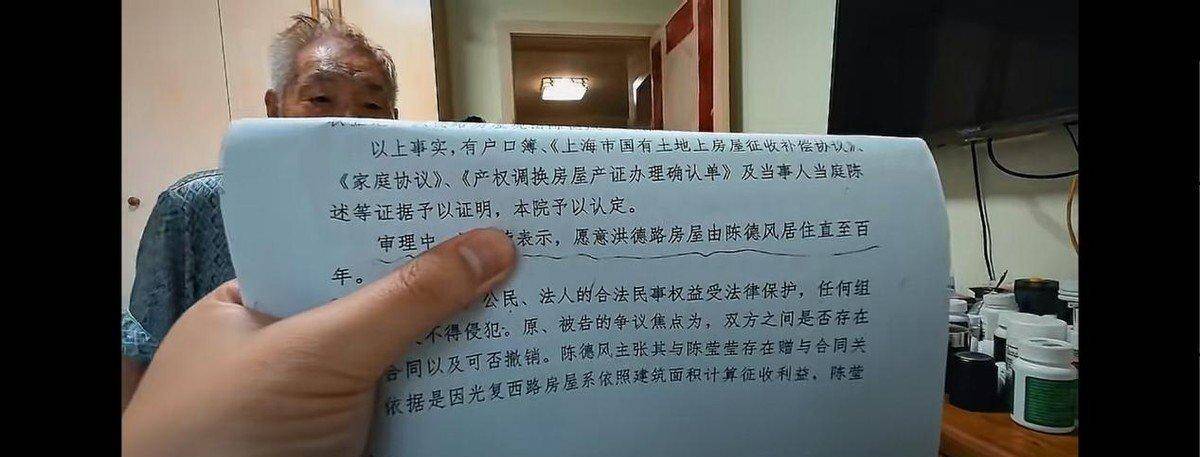 以上事实，有户口簿、《上海市国有土地上房屋征收补偿协议》、
《家庭协议》、《产权调换房屋产证办理确认单》及当事人当庭陈
述等证据予以证明，本院予以认定。
审理中 表示，愿意洪德路房屋由陈德风居住直至百
年。
公民、法人的合法民事权益受法律保护，任何组
不得侵犯。原、被告的争议焦点为，双方之间是否存在
合同以及可否撤销。陈德风主张其与陈莹莹存在赠与合同关
依据是因光复西路房屋系依照建筑面积计算征收利益，陈莹